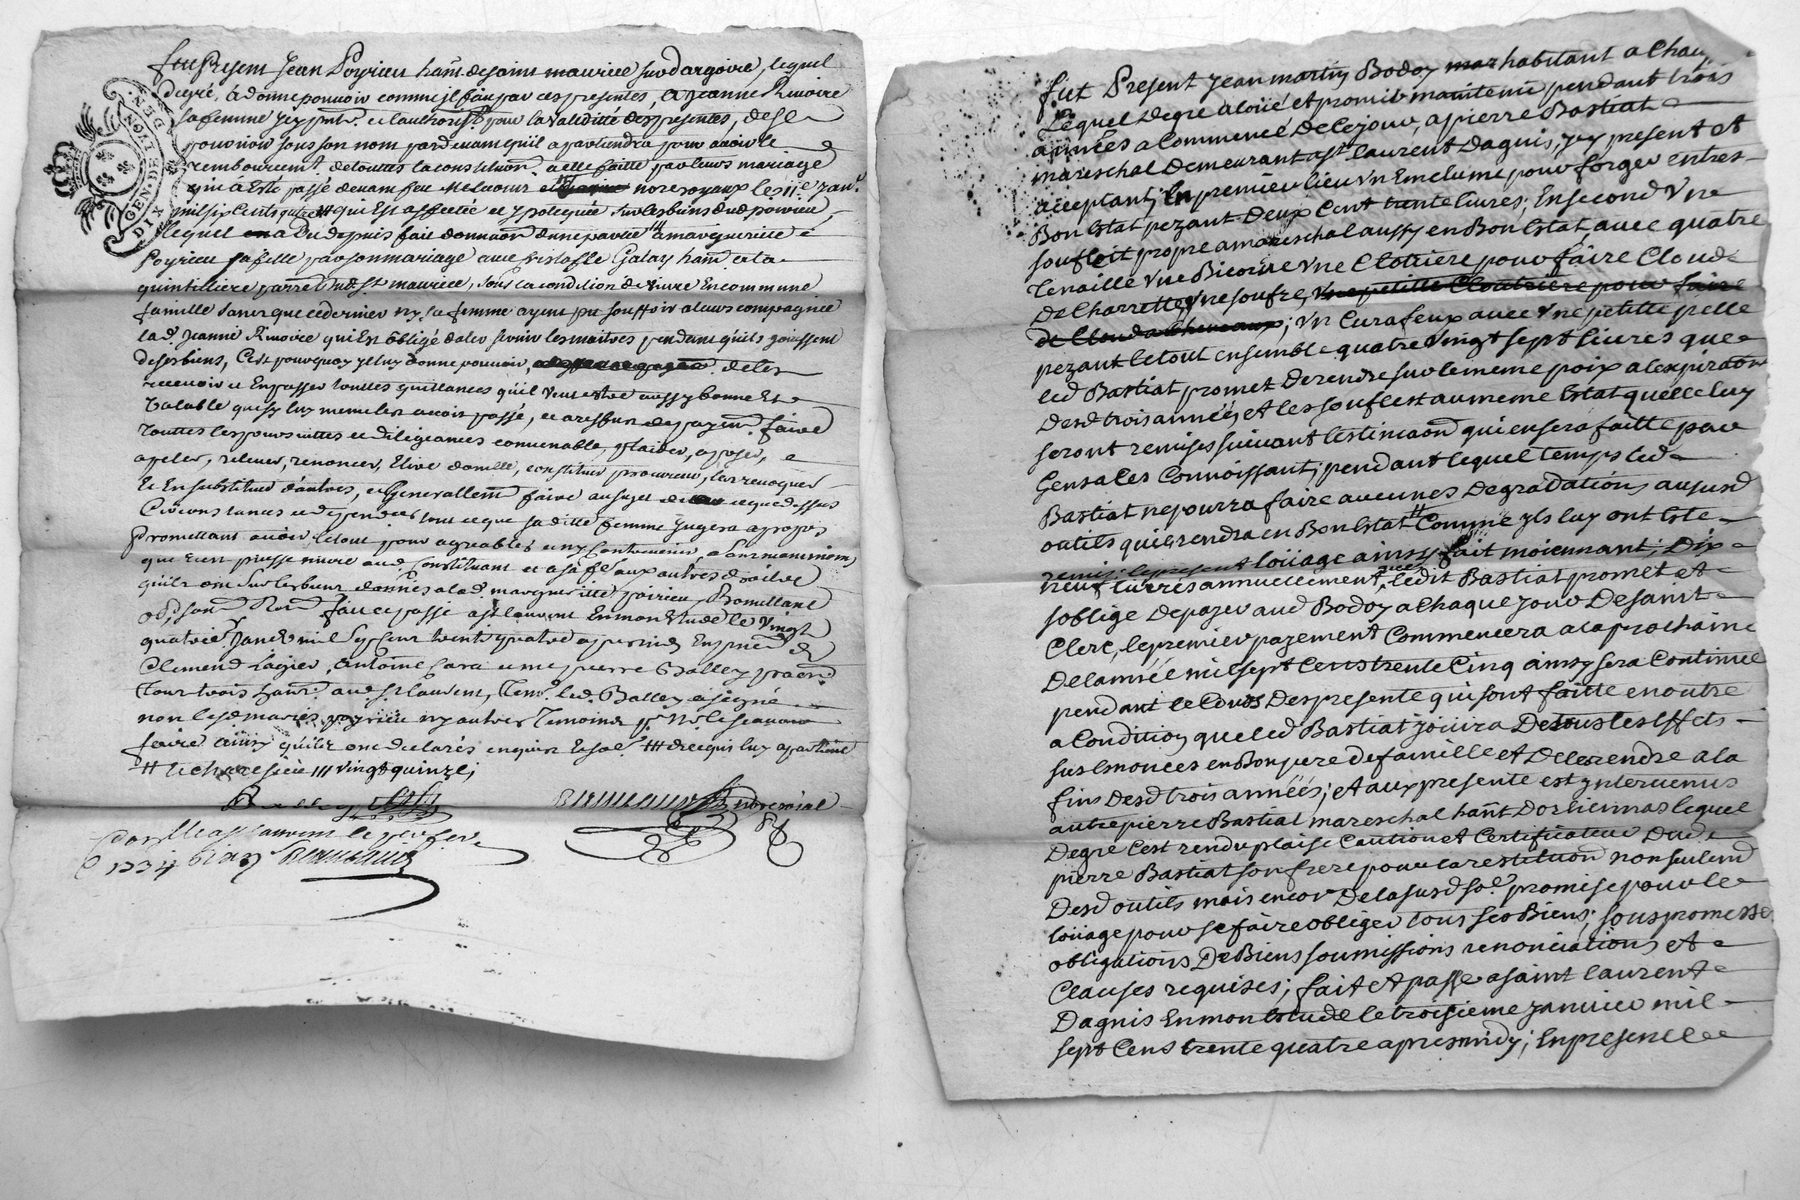 fut Present Jean Poyrieu habt de saint maurice sur dargoire, lequel
degré, a donné pouvoir comme il fait par ces presentes, a Jeanne Rivoire
sa femme
pouvoir sous son nom pardevant qu'il apartiendra pour avoir le
remboursemt de touttes la constitution a elle faitte par leurs mariage
qui a Esté passé devant feu Me
mil six cents quatre qui Est affectée et ypotequée sur les biens dud poyrieu
lequel a du depuis fait donnaon dune partie a marguerite
Poyrieu sa fille par son mariage avec Galay habt a la
quintilliere parre dud st maurice, sous la condition de vivre En commune
famille sans que ce dernier ny sa femme ayent pu souffrir a leurs compagnie
lad. Jeanne Rivoire qui Est obligé daler servir les maitres pendant qu'ils jouissent
de ses biens, C'est pourquoy il luy donne pouvoir, de les
recevoir et En passer touttes quittances qu'il veut estre aussy bonne Et
valable que sy luy meme les avoit passé, et a reffus de payemt. faire
touttes les poursuittes et diligeances convenable, plaider, oposer,
apeler, relever, renoncer, Elire domille, constituer procureur, les revoquer
Et En substituer d'autres, et Generallemt faire au sujet ce que dessus
Circonstances et dependces tout ce que sa ditte femme jugera a propos
Promettant avoir le tout pour agreable et ny Contrevenir,
que Ecus puisse nuire aud Constituant et a sa fe aux autres droits
qu'ils ont sur les biens donnés a lad marguerite poyrieu, Promettant
fait et passé a st laurent En mon Etude le vingt
quatrie Janer mil sept cent trente quatre apres midy En presce de
Clemend Lagier, Antoine et me pierre Balley praon
tous trois habts aud st laurent, Temo. led. Balley a signé
non lesd mariés poyrieu ny autres Temoins pr ne le scavoir
faire ainsy qu'ils ont declarés enquis Et so. /// de ce qui luy apartient
# le cinquieme /// vingt quinze;
Balley
Con
1734
fut Present Jean martin Bodoy habitant a Chau
Lequel degré a loüé et promis maintenir pendant trois
années a Commencé de Cejour, a pierre Bastiat
mareschal Demeurant a st laurent Dagnis, jcy present et
acceptant; En premier lieu vn Enclume pour forger entres
Bon Estat pezant Deux Cent trente livres, En second Vne
soufloit propre a mareschal aussy en Bon Estat, avec quatre
Tenaille vne Bicorne vne Clotriere pour faire Cloud
de Charrettes, vne soufre, vne petitte Cloutriere pour faire
de Cloud a Chevaux; vn Curafeux avec vne petitte pelle
pezant le tout ensemble quatre vingt sept livres que
led Bastiat promet De rendre sur le meme poix a lexpiraon
Desd trois années, et les soufflet au meme Estat quelle luy
seront remises suivant lestimaon qui en sera faitte par
Gens a les Connoissant; pendant lequel temps led
Bastiat ne pourra faire aucunes Degradations aususd
outils qu'il rendra en Bon Estat Comme yls luy ont Esté
remis; le present loüage ainsy fait moiennant; Dix
neuf livres annuellement, ledit Bastiat promet et
s'oblige De payer aud Bodoy a Chaque jour De saint
Clerc, le premier payement Commencera a la prochaine
De lannée mil sept Cens trente Cinq ainsy sera Continuel
pendant le Cours Des presente qui sont faitte en outre
a Condition que led Bastiat joüira De tous les Effets
sus Enoncés en Bon pere de famille et De les rendre a la
fins Desd trois années; et aux presente est yntervenus
autre pierre Bastiat mareschal habt Dorliennas lequel
Degré C'est rendu plaise Caution et Certificateur Dud
pierre Bastiat son frere pour la restituon non seulemt
Desd outils mais encor De la susd so. promise pour le
loüage pour se faire obliger tous ses Biens; sous promesse
obligations De Biens soumissions renonciations et
Clauses requises; fait et passé a saint laurent
Dagnis En mon Estude le troisieme janvier mil
sept Cens trente quatre apres midy; En presence
GEN. DE LYON.
DIX
DEN.